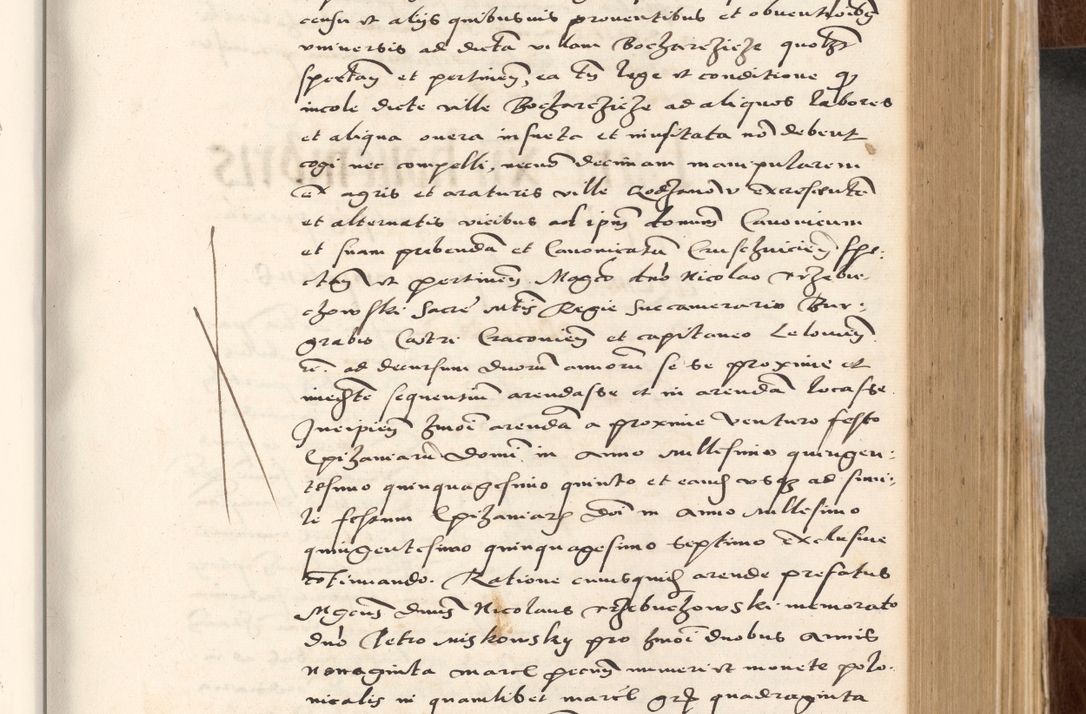 censu et alijs quibusuis prouentibus et obuentioibg
vniuersis ad dictā villam Boczarzicze quottz
spectan et pertinen, ea tn lege et conditione qp
incole dicte ville Boczarczicze ad aliquos labores
et aliqua onera insueta et inusitata nō debent
cogi nec compelli, necnō decimam manipularem
ex agris et araturis ville excrescentē
et alternatis vicibus ad ipm domum Canonicum
et suam prebendā et Canonicatū Cruschuicien spe:
ctan et pertinen Magco dno Nicolao Trzebu:
chowski Sacre Mtis Regie Succamerario Bur:
grabio Castri Cracouien et capitaneo Lelouien
ad decursum duorū annorū se se proxime et
imediate sequentium arendasse et in arendā locasse
Incipien hmoi arendā a proxime venturo festo
Epiphaniarū Domini in anno millesimo quingen:
tesimo quinquagesimo quinto et eandem vsq ad simi:
le festum Epiphaniarum Doi in anno Millesimo
quingentesimo quinquagesimo septimo exclusiue
cōtinuando. Ratione cuiusquidem arende prefatus
Mgcus Dnus Nicolaus Trzebuchowski memorato
dno Petro Miskowsky pro hmoi duobus annis
nonaginta marcl pecun numeri et monete polo:
nicalis in quamlibet marcl grp quadraginta